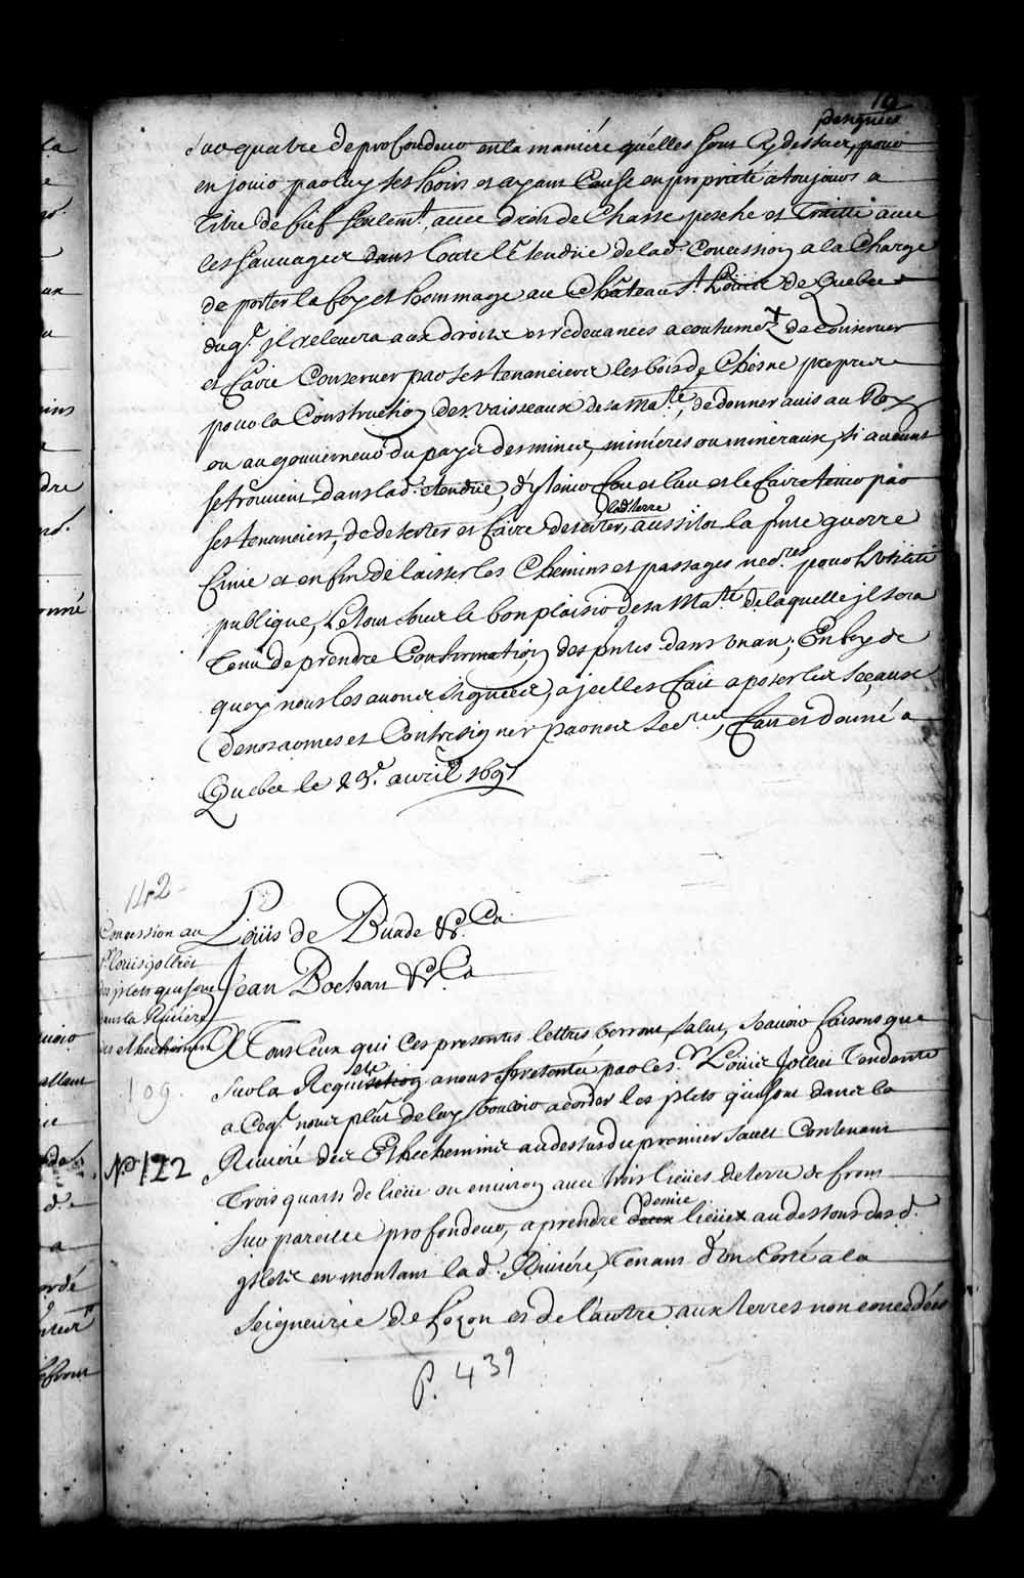 19
designées
Sur quatre de profondeur en la maniére qu'elles sont Cy dessus, pour
en jouir par luy ses hoirs et ayans Cause en proprieté a toujours a
titre de fief seulemt, avec droit de Chasse pesche et Traitte avec
les sauvages dans toute l'etendüe de lad. Concession a la Charge
de porter la foy et hommage au Château St. Loüis de Quebec
duql. il relevera aux droits et redevances acoutumez de conserver
et faire Conserver par ses tenanciers les bois de Chesne propres
pour la Construction des vaisseaux de sa Maté, de donner avis au Roy
ou au gouverneur du pays des mines, minieres ou mineraux, si aucuns
se trouvent dans lad. étendüe, d'y tenir feu et lieu et le faire tenir par
ses tenanciers, de deserter et faire deserter, aussitôt la pnte guerre
lad. terre
finie et enfin de laisser les Chemins et passages necres. pour l'utilité
publique, Le tout sous le bon plaisir de sa Maté de laquelle il sera
tenu de prendre Confirmation des pntes dans un an; En foy de
quoy nous les avons signées, a jcelles fait aposer les sceaux
de nos armes et Contresigner par nos Secres, fait et donné a
Quebec le 29e. avril 1697
142
Concession au
Sr. louis jolliet
des jslets qui sont
dans la Riviére
des ethechemins
109.
No 122
Loüis de Buade &c. Ca.
Jean Bochart &c. Ca
A Tous Ceux qui Ces presentes lettres verront salut, sçavoir faisons que
sur la Requeste a nous presentée par le Sr. Loüis Jolliet Tendante
a Ceql. nous plût de luy vouloir acorder les jslets qui sont dans la
Riviére des Ethechemins au dessus du premier sault Contenant
trois quarts de lieüe ou environ avec trois lieües de terre de front
sur pareille profondeur, a prendre demie lieüe au dessous desd.
jslets en montant lad. Riviére, tenant d'un Costé a la
Seigneurie de Lozon et de l'autre aux terres non concedées
P. 439